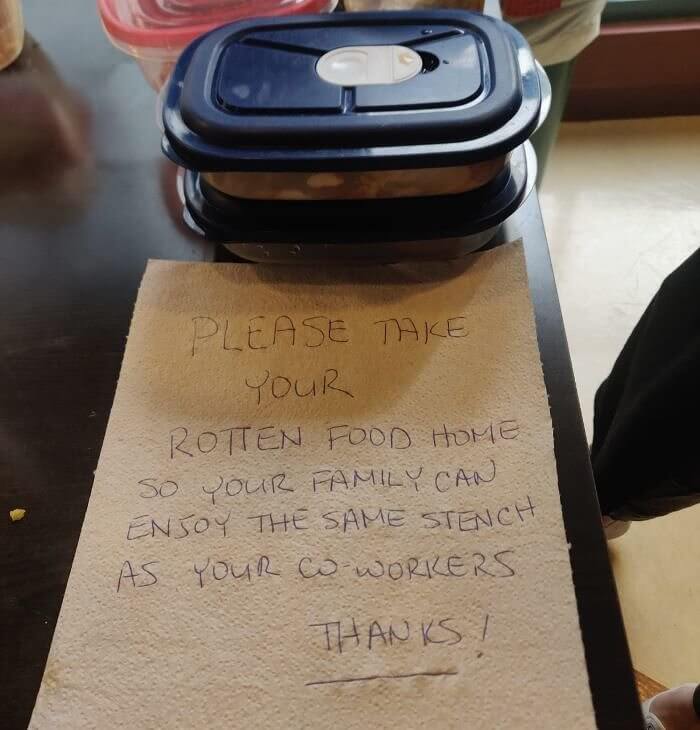 PLEASE TAKE
YOUR
ROTTEN FOOD HOME
SO YOUR FAMILY CAN
ENJOY THE SAME STENCH
AS YOUR CO-WORKERS
THANKS!